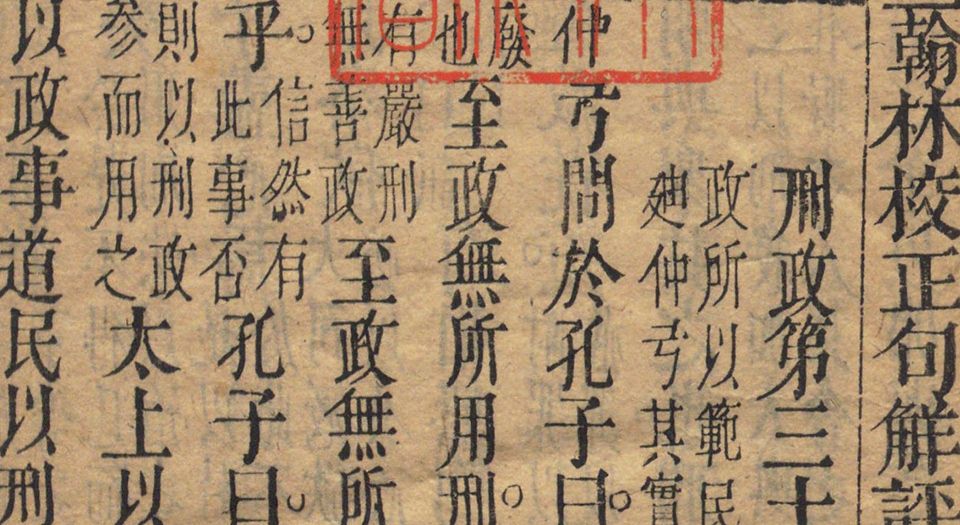 翰林校正句觧評
刑政第三十
政所以範民
廸仲弓其實
仲弓問於孔子曰。
廢
也
至政無所用刑。
有嚴刑
無善政
至政無所
乎。
信然有
此事否
孔子曰。
則以刑政
参而用之
太上以
以政事道民以刑